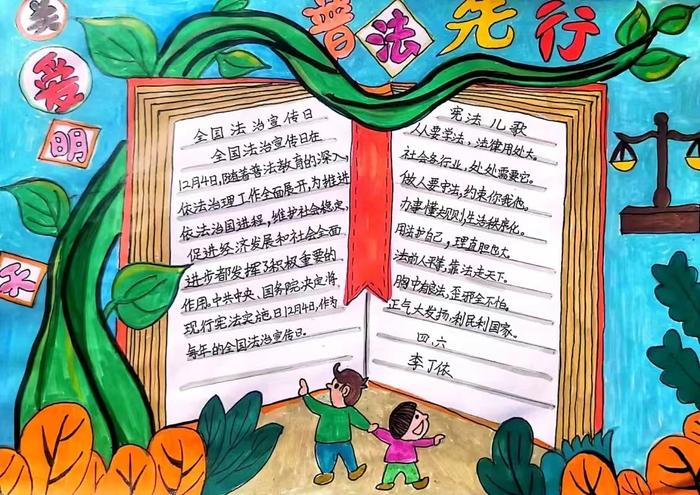 普法先行
关
爱
明
天
全国法治宣传日
全国法治宣传日在
12月4日,随着普法教育的深入,
依法治理工作全面展开,为推进
依法治国进程,维护社会稳定,
促进经济发展和社会全面
进步都发挥了积极重要的
作用。中共中央、国务院决定将
现行宪法实施日12月4日,作为
每年的全国法治宣传日。
宪法儿歌
人人要学法,法律用处大。
社会各行业,处处需要它。
做人要守法,约束你我他。
办事懂规则,生活秩序化。
用法护自己,理直胆也大。
法前人平等,靠法走天下。
胸中有良法,歪邪全不怕。
正气大发扬,利民利国家。
四、六
李丁依